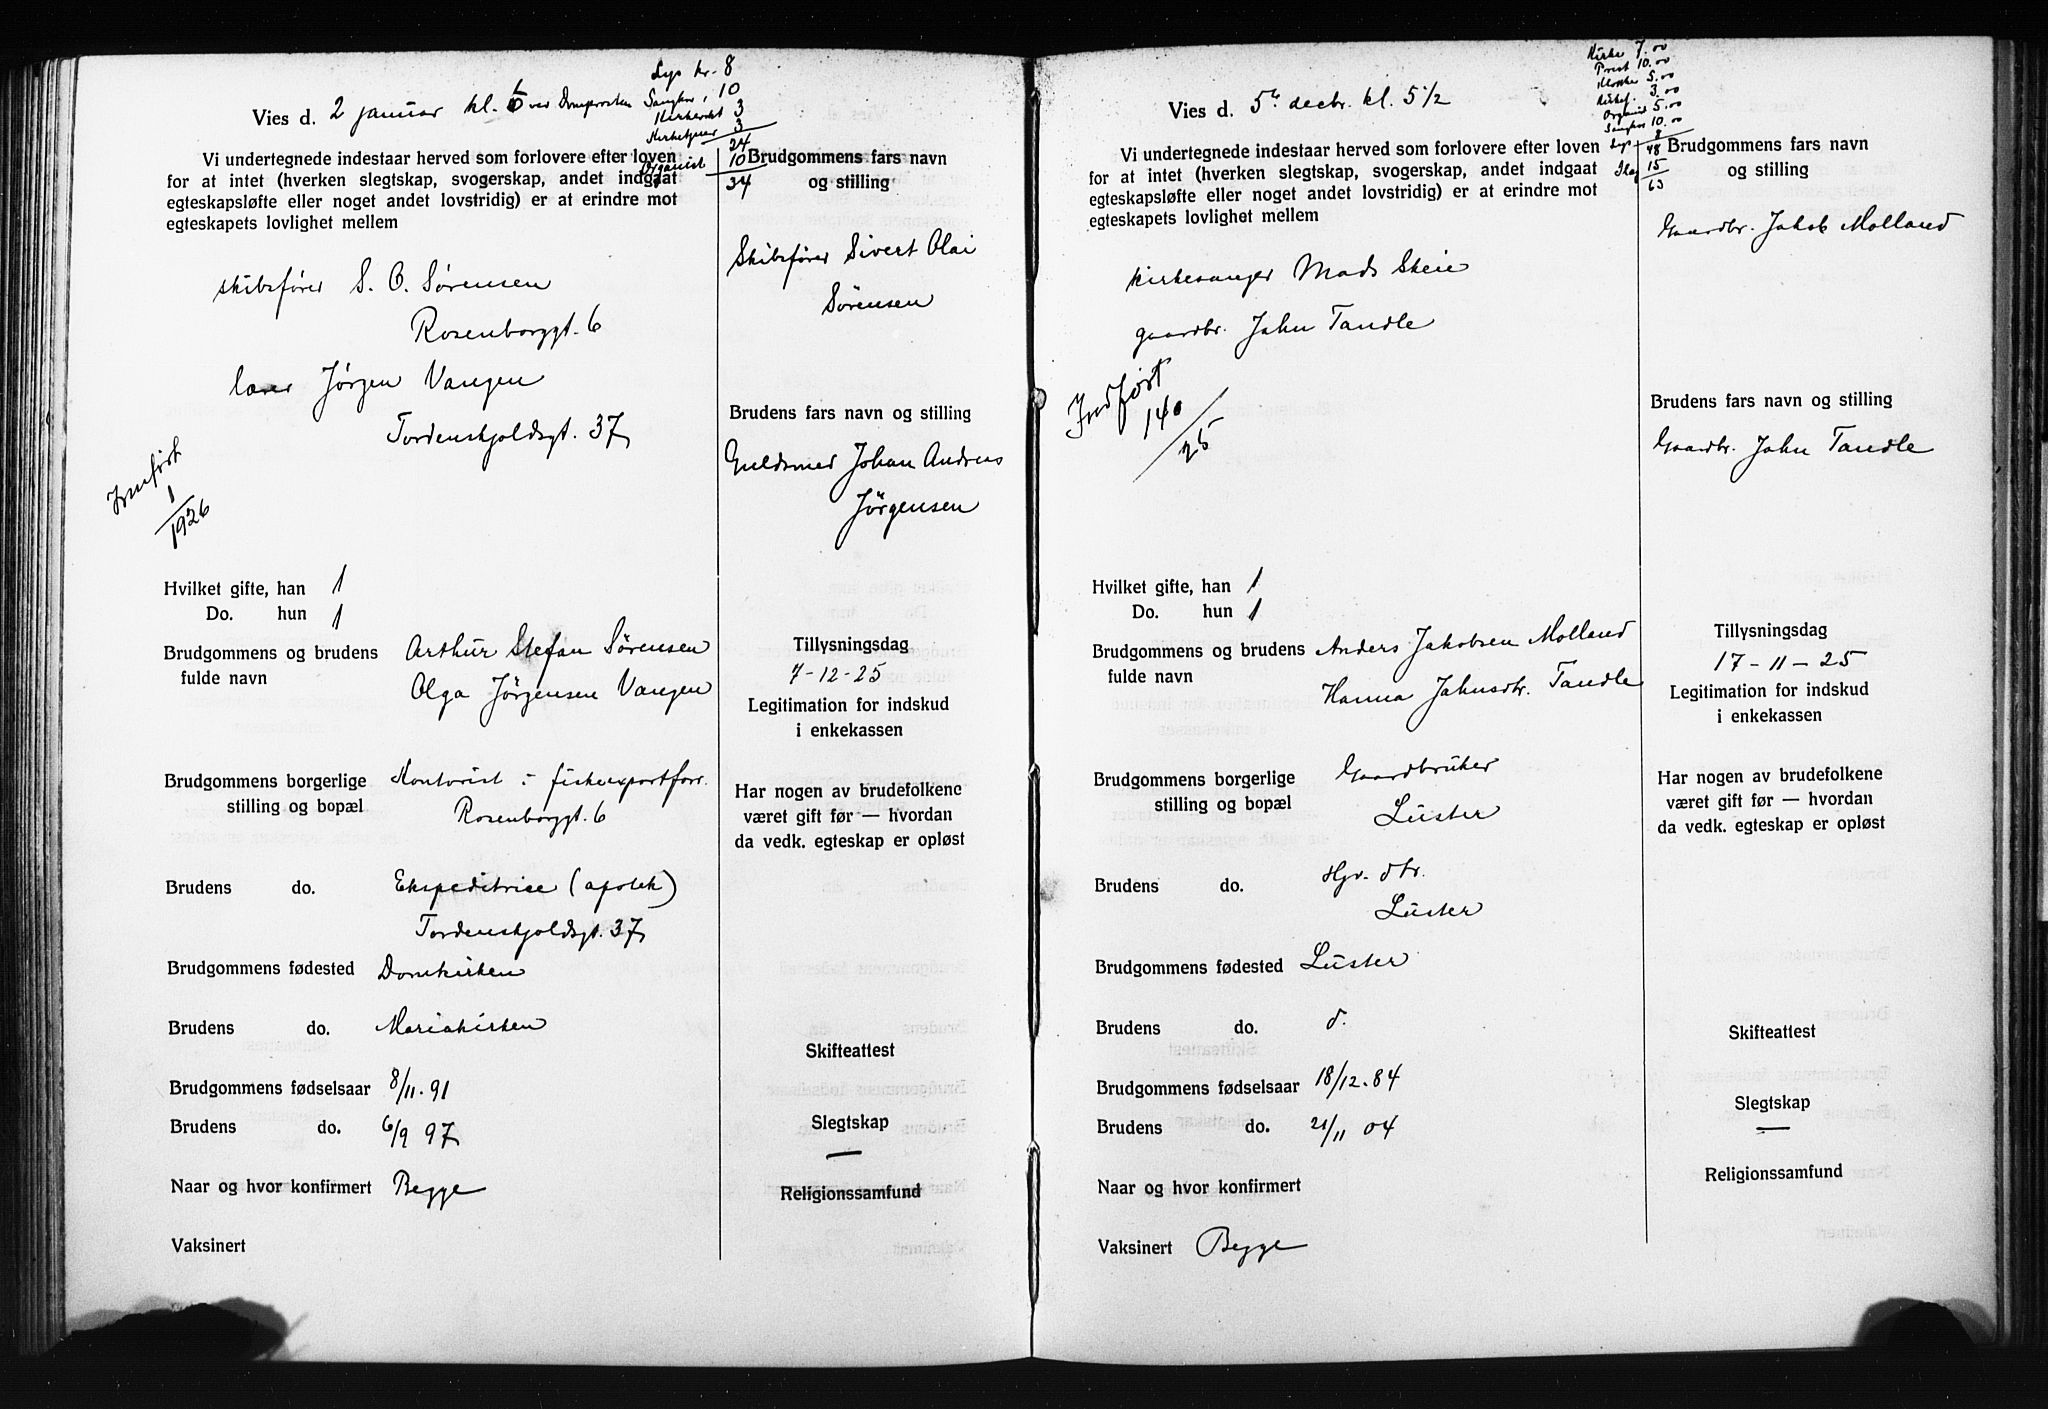 Lys kr. 8
Vies d. 2 januar kl. 6 ved Domprosten Sangkor, 10
Kirkeverk 3
Kirketjener 3
24
Organist 10
34
Vi undertegnede indestaar herved som forlovere efter loven
for at intet (hverken slegtskap, svogerskap, andet indgaat
egteskapsløfte eller noget andet lovstridig) er at erindre mot
egteskapets lovlighet mellem
skibsfører S. O. Sørensen
Rosenborggt. 6
lærer Jørgen Vangen
Tordenskjoldsgt. 37
Innført
1
/1926
Brudgommens fars navn
og stilling
Skibsfører Sivert Olai
Sørensen
Brudens fars navn og stilling
Guldsmed Johan Andreas
Jørgensen
Hvilket gifte, han 1
Do. hun 1
Brudgommens og brudens Arthur Stefan Sørensen
fulde navn Olga Jørgensen Vangen
Brudgommens borgerlige Kontorist : fiskeexportforr.
stilling og bopæl Rosenborggt. 6
Brudens do. Ekspeditrise (apotek)
Tordenskjoldsgt. 37
Brudgommens fødested Domkirken
Brudens do. Mariakirken
Brudgommens fødselsaar 8/11. 91
Brudens do. 6/9 97
Naar og hvor konfirmert Begge
Vaksinert
Tillysningsdag
7-12-25
Legitimation for indskud
i enkekassen
Har nogen av brudefolkene
været gift før — hvordan
da vedk. egteskap er opløst
Skifteattest
Slegtskap
—
Religionssamfund
Kirke 7.00
Prest 10.00
Klokker 5.00
Kirket. 3.00
Organist 5.00
Sangkor 10.00
Lys 8
48
15
63
Vies d. 5te decbr. kl. 5 1/2
Vi undertegnede indestaar herved som forlovere efter loven
for at intet (hverken slegtskap, svogerskap, andet indgaat
egteskapsløfte eller noget andet lovstridig) er at erindre mot
egteskapets lovlighet mellem
Kirkesanger Mads Skeie
gaardbr. John Tandle
Indført
140
/25
Brudgommens fars navn
og stilling
Gaardbr. Jakob Molland
Brudens fars navn og stilling
Gaardbr. John Tandle
Hvilket gifte, han 1
Do. hun 1
Brudgommens og brudens Anders Jakobsen Molland
fulde navn Hanna Johnsdtr. Tandle
Brudgommens borgerlige Gaardbruker
stilling og bopæl Luster
Brudens do. Hgv. dtr.
Luster
Brudgommens fødested Luster
Brudens do. d.
Brudgommens fødselsaar 18/12. 84
Brudens do. 21/11 04
Naar og hvor konfirmert
Vaksinert Begge
Tillysningsdag
17-11-25
Legitimation for indskud
i enkekassen
Har nogen av brudefolkene
været gift før — hvordan
da vedk. egteskap er opløst
Skifteattest
Slegtskap
—
Religionssamfund